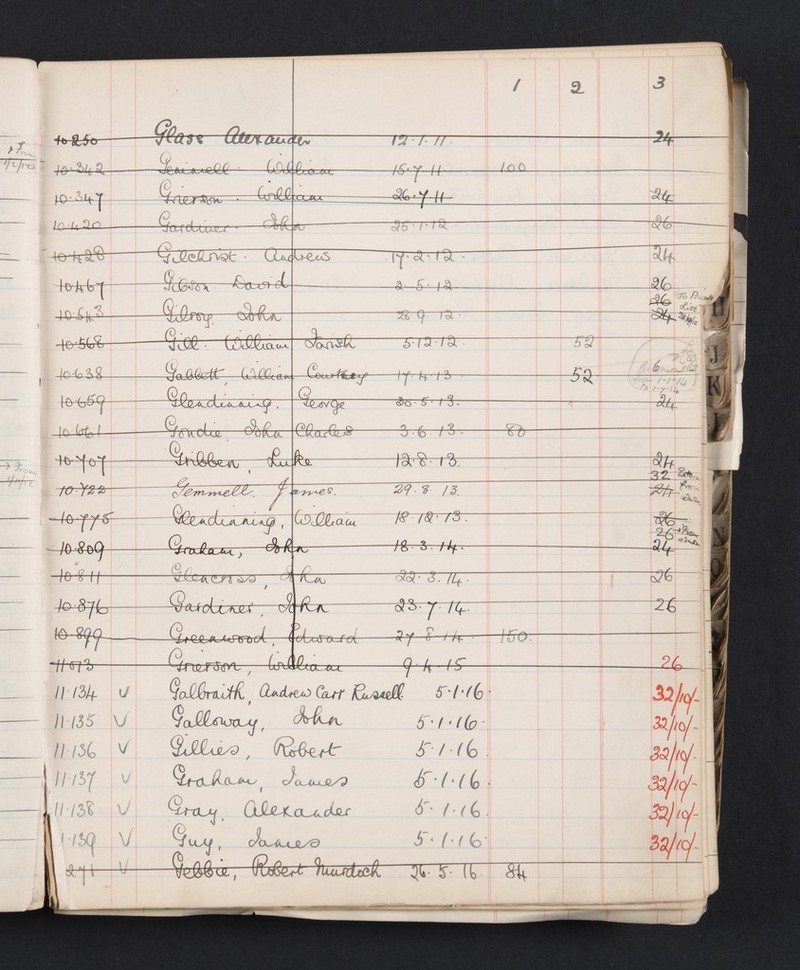 1 2 3
10250 Glass Alexander 12.1.11. 24
10.342 William 15.7.11 100
10.347 Grierson. William 26.7.11 24
10420 Gardiner. John 25.1.12 26
10428 Gilchrist. Andrew 17.2.12. 24
10467 Gibson. David 2.5.12. 26
10.543 Gilroy. John 28.9.12. 26 24 To
10.568 Gill. William 5.12.12. 52
10.638 Gabbott, William Courtney 17.4.13 52
10659 Glendinning, George 30.5.13. 24
10.661 Goudie John Charles 3.6.13. 80
10.707 Gribben, Luke 12.8.13. 24
10.722 Gemmell. James. 29.8.13. 32 24
10.775 Glendinning, William 18.12.13. 26
10.809 Graham, John 18.3.14. 26 24
10811 Glencross, John 22.3.14. 26
10.876 Gardiner, John 23.7.14. 26
10.899 Greenwood, Edward 27.8.14. 150.
11013 Grierson, William 9.4.15 26
11.134 V Galbraith, Andrew Carr Russell 5.1.16. 32/10/-
11.135 V Galloway, John 5.1.16. 32/10/-
11.136 V Gillies, Robert 5.1.16. 32/10/-
11.137 V Graham, James 5.1.16. 32/10/-
11.138 V Gray, Alexander 5.1.16. 32/10/-
1.139 V Guy, James 5.1.16. 32/10/-
271 V Gebbie, Robert Murdoch 26.5.16. 84